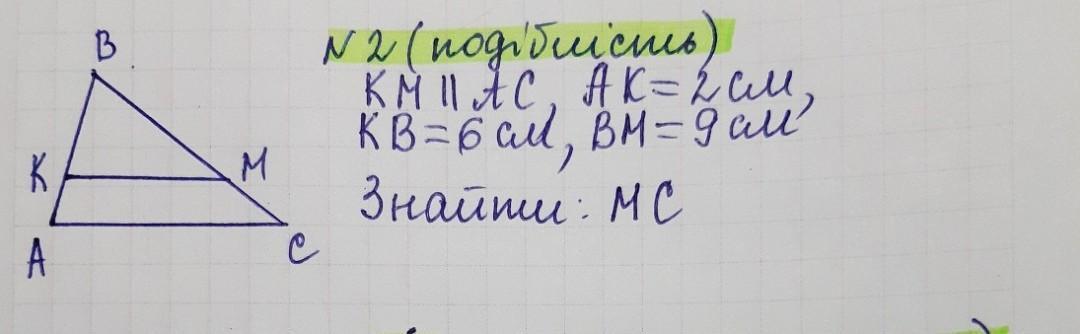 N2 (подібність)
KM || AC, AK = 2 см,
KB = 6 см, BM = 9 см
Знайти: MC
B
K
M
A
C